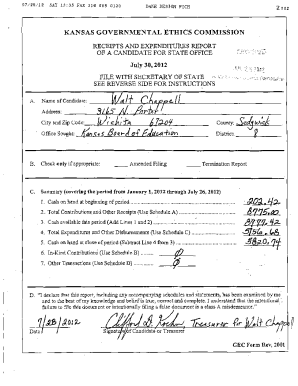 KANSAS GOVERNMENTAL ETHICS COMMISSION
RECEIPTS AND EXPENDITURES REPORT
OF A CANDIDATE FOR STATE OFFICE
July 30, 2012
FILE WITH SECRETARY OF STATE
SEE REVERSE SIDE FOR INSTRUCTIONS
A. Name of Candidate: Walt Chappell
Address: 3165 N. Porter
City and Zip Code: Wichita 67204 County: Sedgwick
Office Sought: Kansas Board of Education District: 8
B. Check only if appropriate: Amended Filing Termination Report
C. Summary (covering the period from January 1, 2012 through July 26, 2012)
1. Cash on hand at beginning of period 202.42
2. Total Contributions and Other Receipts (Use Schedule A) 8775.00
3. Cash available this period (Add Lines 1 and 2) 8977.42
4. Total Expenditures and Other Disbursements (Use Schedule C) 3156.68
5. Cash on hand at close of period (Subtract Line 4 from 3) 5820.74
6. In-Kind Contributions (Use Schedule B) 0
7. Other Transactions (Use Schedule D) 0
D. "I declare that this report, including any accompanying schedules and statements, has been examined by me
and to the best of my knowledge and belief is true, correct and complete. I understand that the intentional
failure to file this document or intentionally filing a false document is a class A misdemeanor."
7/28/2012 Treasurer for Walt Chappell
Date Signature of Candidate or Treasurer
GEC Form Rev, 2001